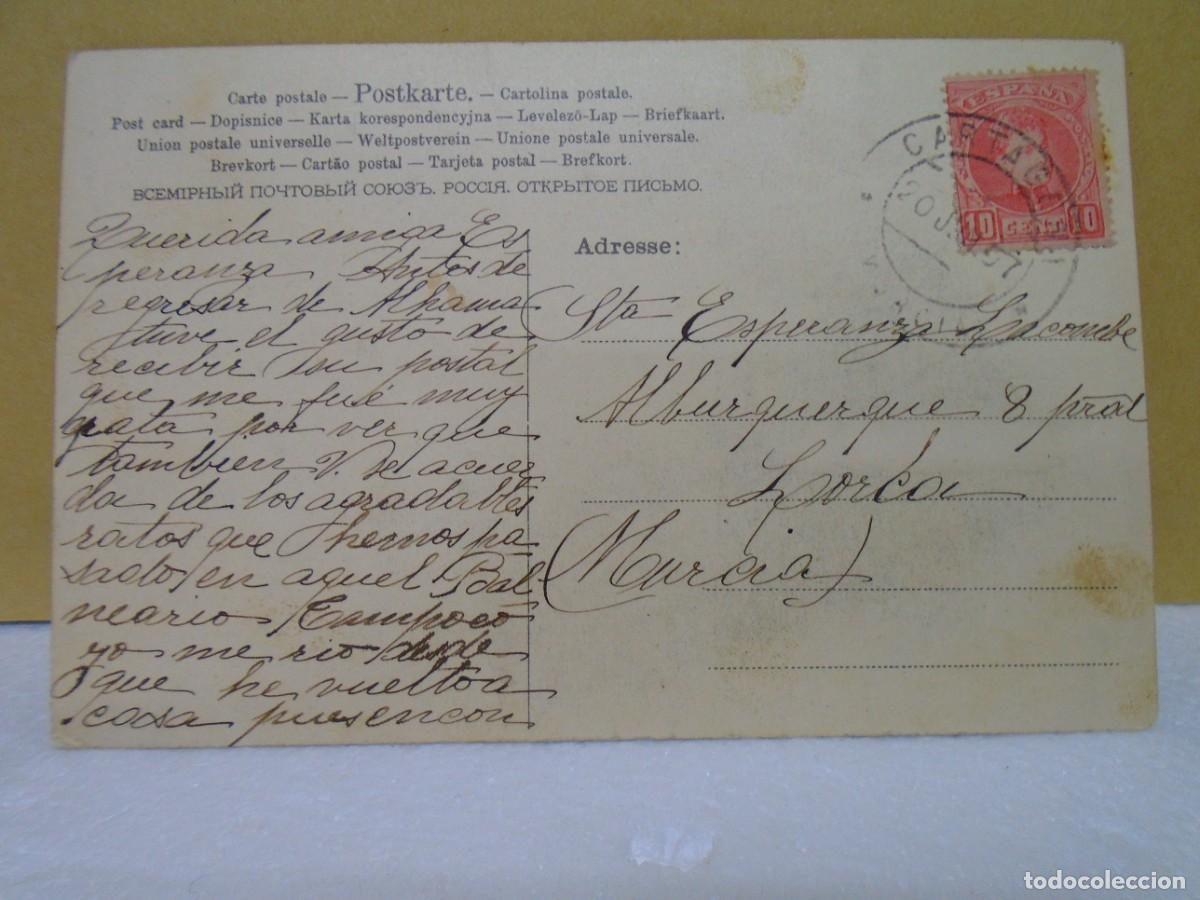 Carte postale — Postkarte. — Cartolina postale.
Post card — Dopisnice — Karta korespondencyjna — Levelező-Lap — Briefkaart.
Union postale universelle — Weltpostverein — Unione postale universale.
Brevkort — Cartão postal — Tarjeta postal — Brefkort.
ВСЕМІРНЫЙ ПОЧТОВЫЙ СОЮЗЪ. РОССІЯ. ОТКРЫТОЕ ПИСЬМО.
Querida amiga Es
peranza Antes de
regresar de Alhama
tuve el gusto de
recibir su postal
que me fué muy
grata por ver que
tambien V. se acuer
da de los agradables
ratos que hemos pa
sado en aquel Bal
neario Tampoco
yo me rio desde
que he vuelto a
casa pues encon
ESPAÑA
10 CENT 10
CARTAGE
20 07
Adresse:
Sta Esperanza
Alburquerque 8 pral
Lorca
(Murcia)
todocoleccion